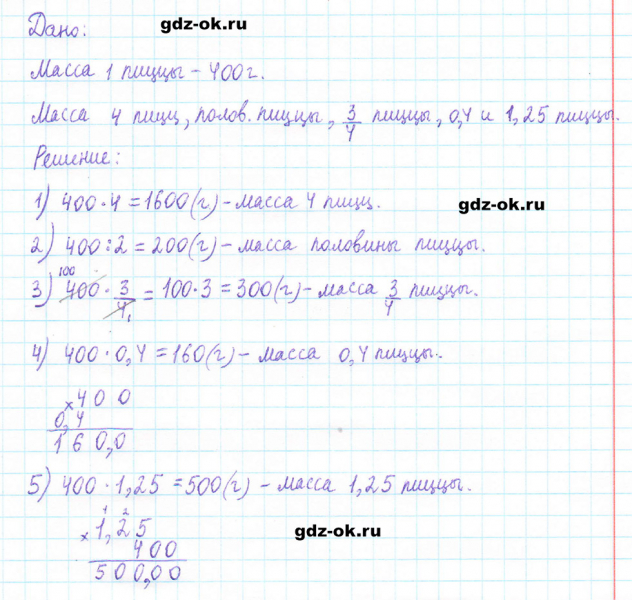 Дано:
gdz-ok.ru
Масса 1 пиццы - 400 г.
Масса 4 пицц, полов. пиццы, 3/4 пиццы, 0,4 и 1,25 пиццы.
Решение:
1) 400 · 4 = 1600 (г) - масса 4 пицц.
gdz-ok.ru
2) 400 : 2 = 200 (г) - масса половины пиццы.
100
3) 400 · 3/4 1 = 100 · 3 = 300 (г) - масса 3/4 пиццы.
4) 400 · 0,4 = 160 (г) - масса 0,4 пиццы.
× 400
0,4
160,0
5) 400 · 1,25 = 500 (г) - масса 1,25 пиццы.
1 2
× 1,25
400
500,00
gdz-ok.ru